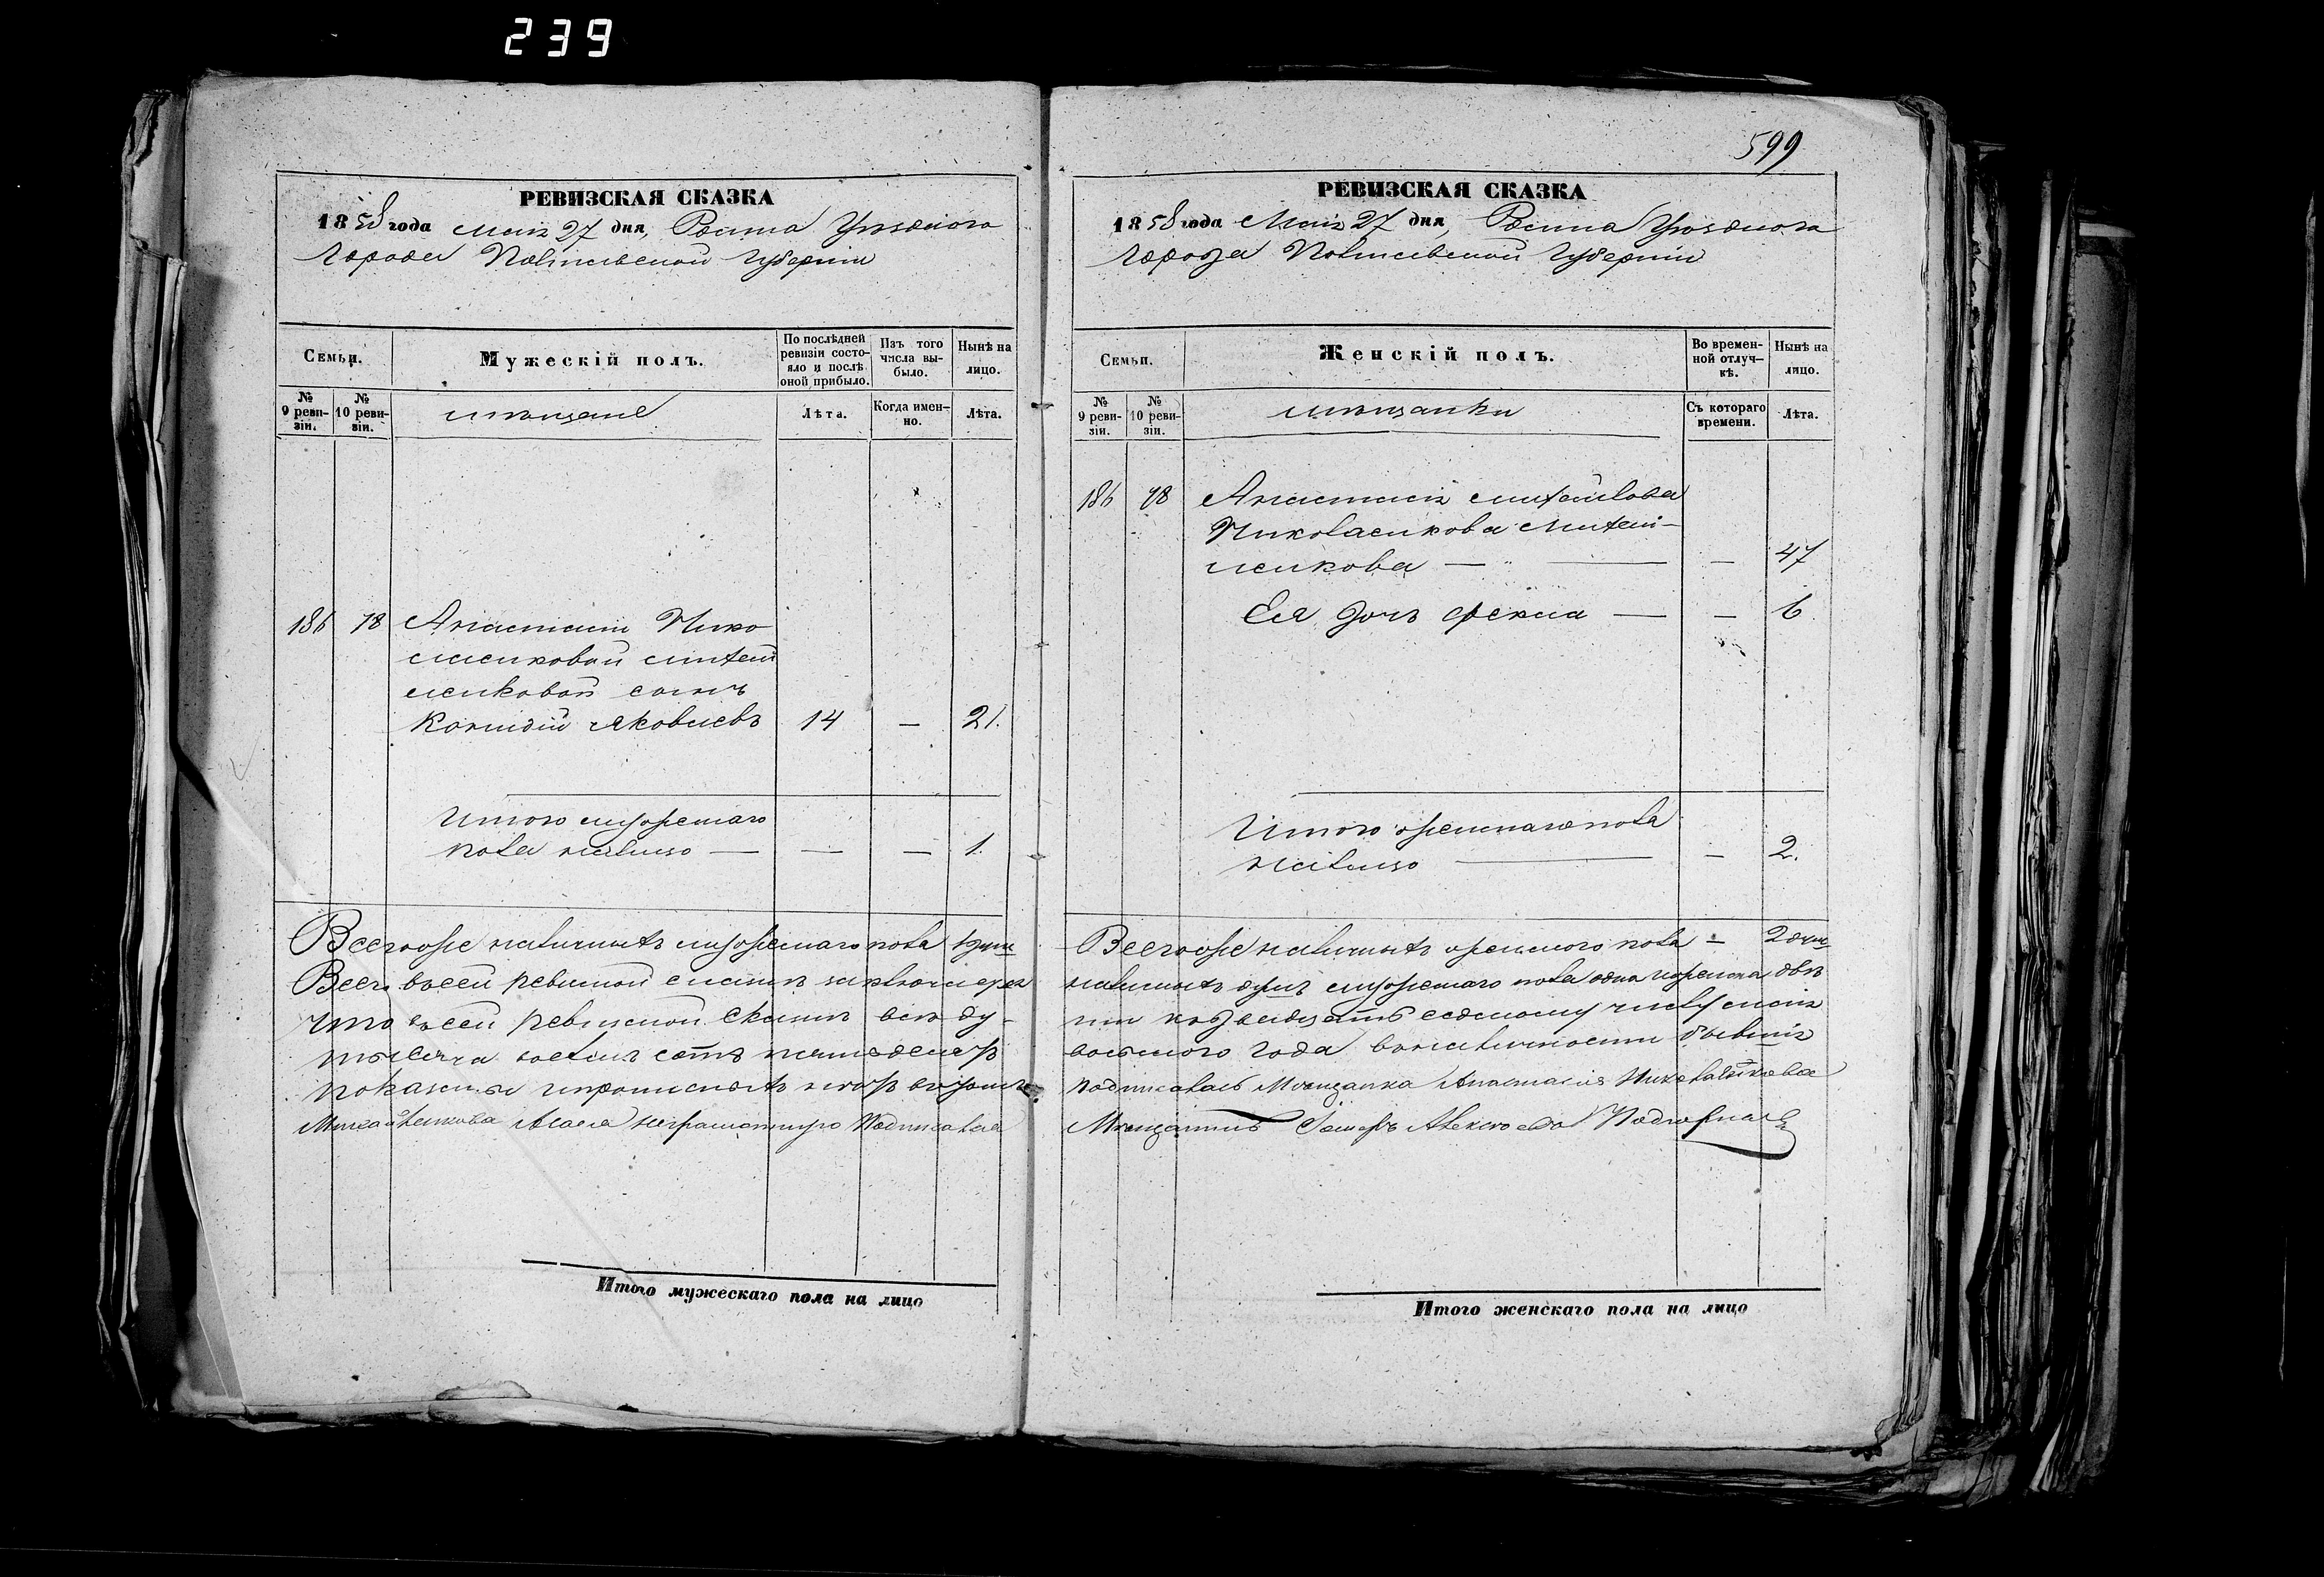 239
РЕВИЗСКАЯ СКАЗКА
1858 года Мая 27 дня, Уѣзднаго
Города Полтавской Губерніи
Семьи.
Мужескій полъ.
По послѣдней ревизіи состояло и послѣ оной прибыло.
Изъ того числа выбыло.
Нынѣ на лицо.
№ 9 ревизіи.
№ 10 ревизіи.
мѣщане
Лѣта.
Когда именно.
Лѣта.
186 78 Анастасіи Нико
лаенковой Михай
ленковой сынъ
Яковлевъ 14 — 21.
Итого мужескаго
пола налицо — — — 1.
Всего же наличныхъ мужескаго пола 1 душ
Всего въ сей ревизской
что въ сей ревизской сказкѣ всѣ ду-
тысяча восемь сотъ пятьдесятъ
показаны и прописныхъ нѣтъ
Михайленкова А за нея неграмотную Подписался
Итого мужескаго пола на лицо
599
РЕВИЗСКАЯ СКАЗКА
1858 года Мая 27 дня, Уѣзднаго
Города Полтавской Губерніи
Семьи.
Женскій полъ.
Во временной отлучкѣ.
Нынѣ на лицо.
№ 9 ревизіи.
№ 10 ревизіи.
мѣщанки
Съ котораго времени.
Лѣта.
186 78 Анастасія Михайлова
Николаенкова Михай-
ленкова — — — 47
Ея дочь Фекла — — 6.
Итого женскаго пола
налицо — — 2.
Всего же наличныхъ женскаго пола — 2 душ
наличныхъ душъ мужескаго пола одна и женска двѣ
двадцать седьмому числу мая
восьмого года въ наличности бывшія
подписалась Мѣщанка Анастасія Николаенкова
Мѣщанинъ
Итого женскаго пола на лицо